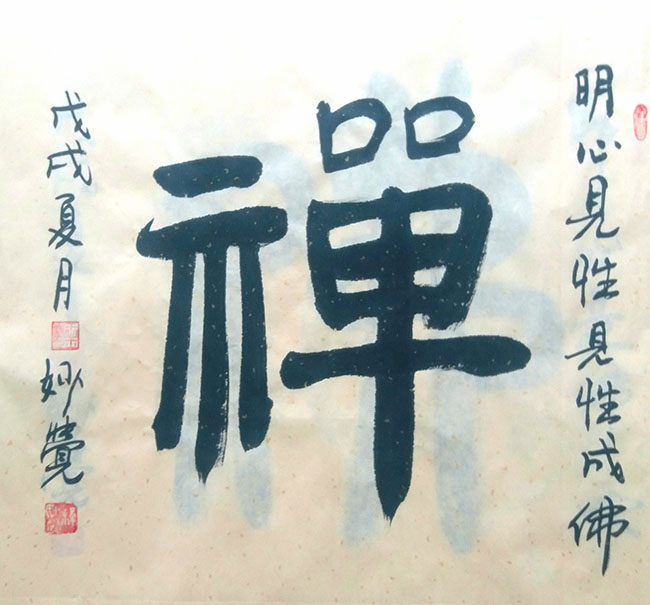 明心見性見性成佛
禪
戊戌夏月
妙覺